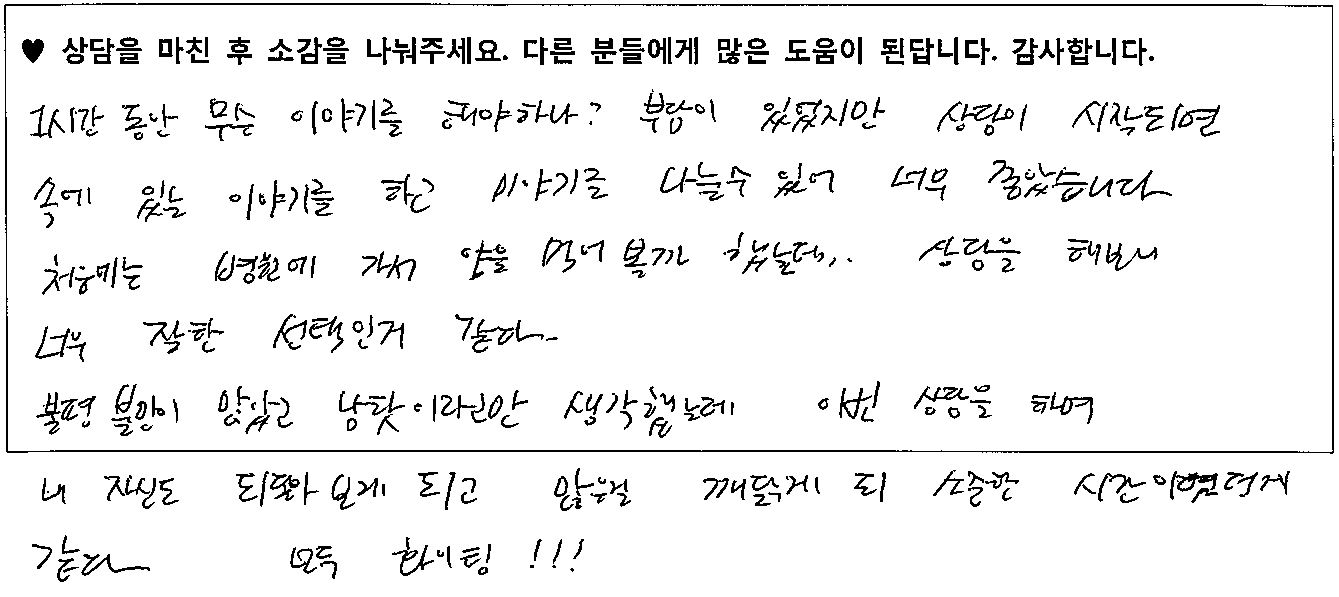 ♥ 상담을 마친 후 소감을 나눠주세요. 다른 분들에게 많은 도움이 된답니다. 감사합니다.
1시간 동안 무슨 이야기를 해야하나? 부담이 있었지만 상담이 시작되면
속에 있는 이야기를 하고 이야기를 나눌수 있어 너무 좋았습니다
처음에는 병원에 가서 약을 먹어 볼까 했는데,.. 상담을 해보니
너무 잘한 선택인거 같다.
불평 불만이 많았고 남탓이라고만 생각했는데 이번 상담을 하며
내 자신도 되돌아 보게 되고 많은걸 깨닫게 되 소중한 시간이였던거
같다 모두 화이팅 !!!